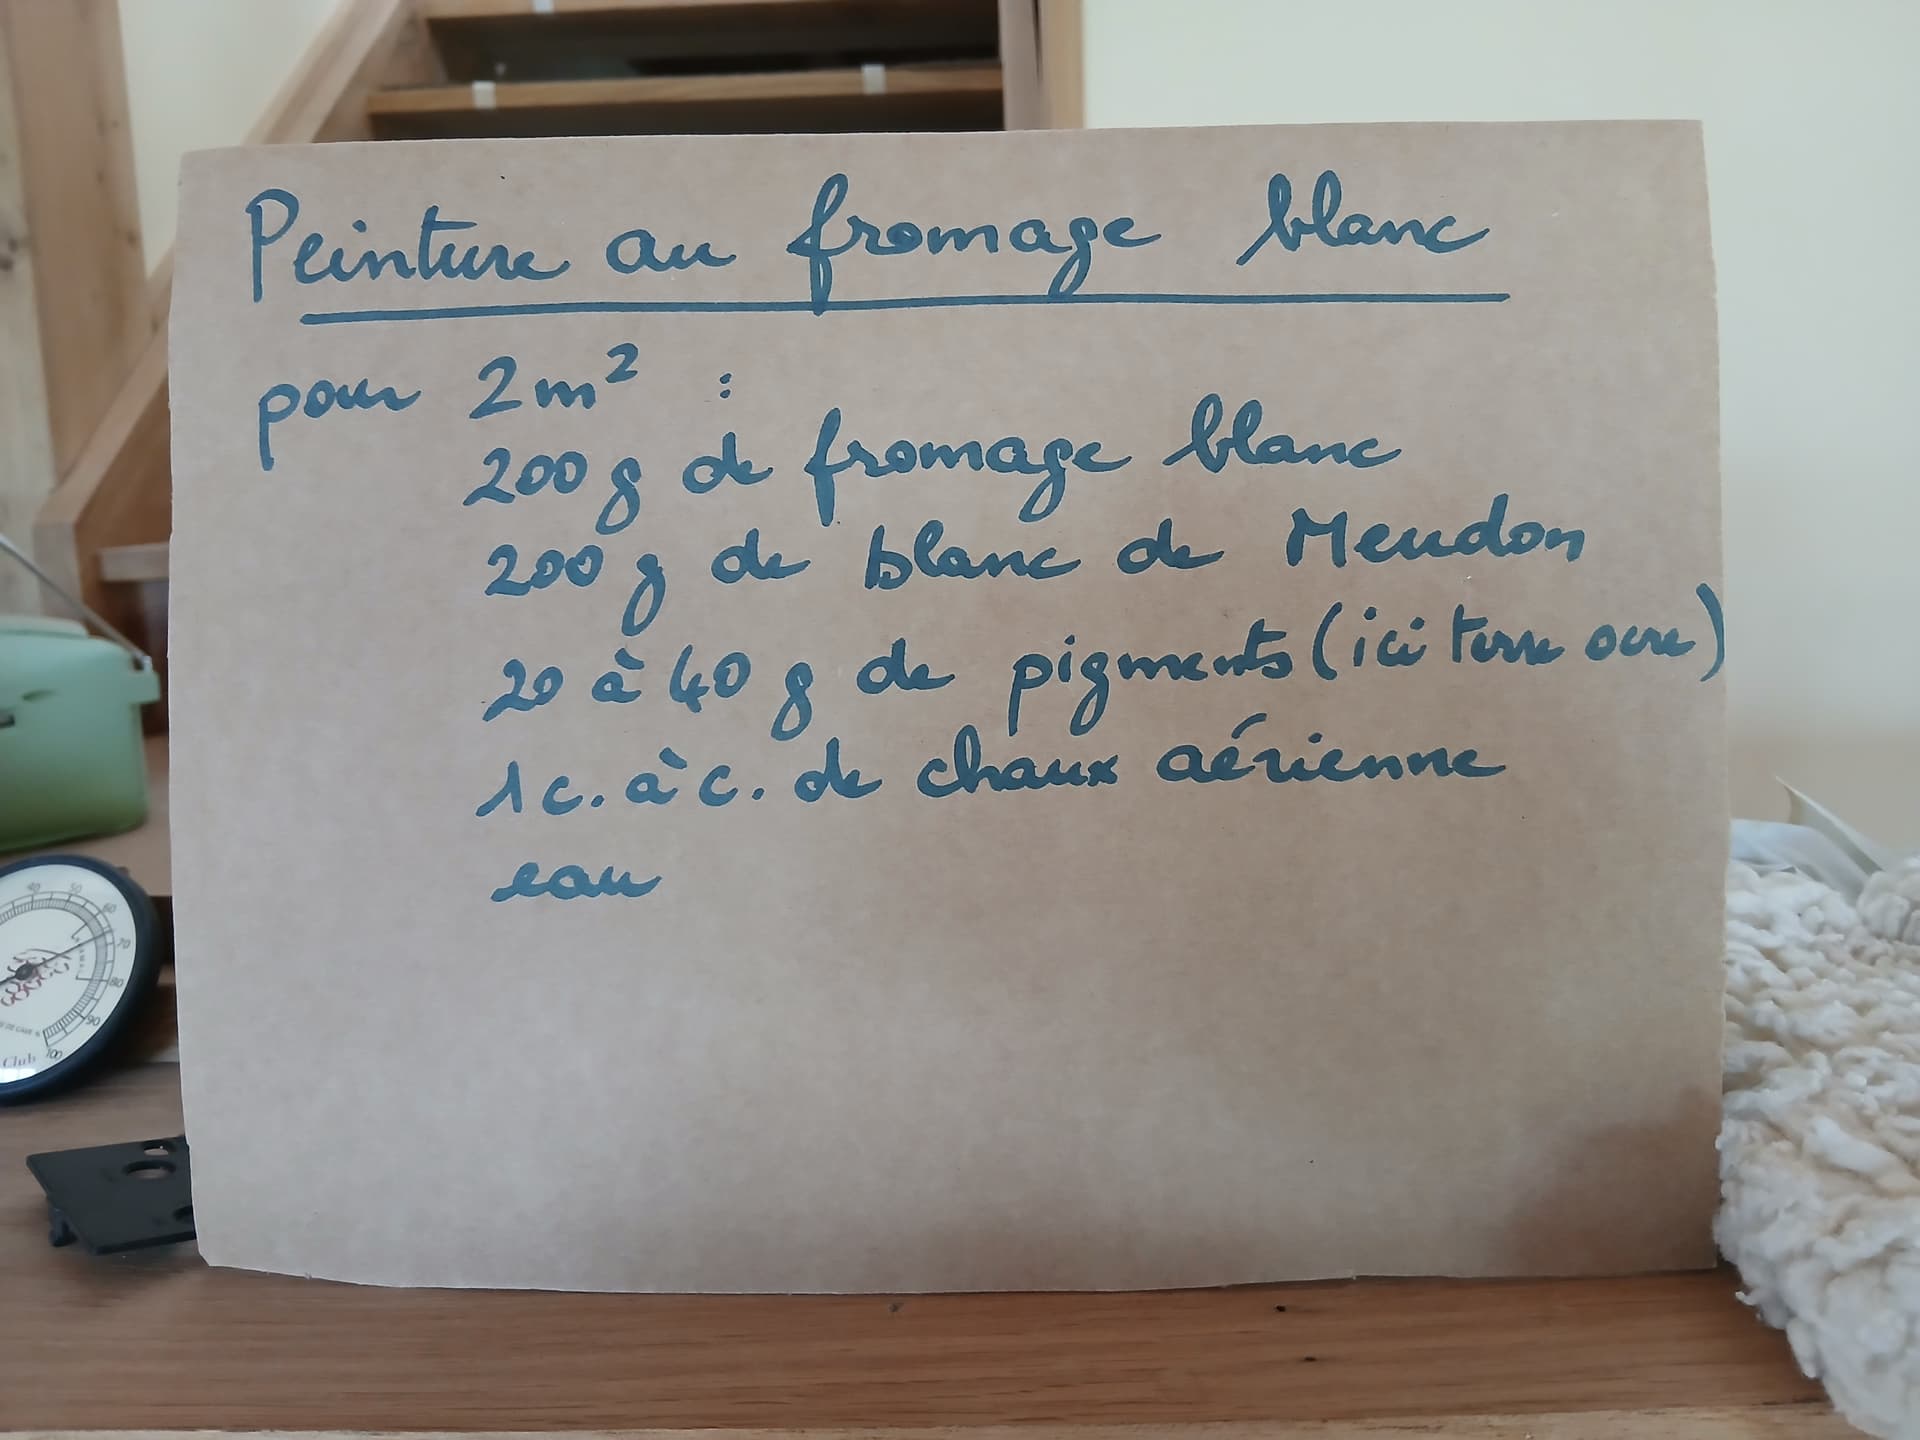 Peinture au fromage blanc
pour 2m² :
200 g de fromage blanc
200 g de blanc de Meudon
20 à 40 g de pigments (ici terre ocre)
1 c. à c. de chaux aérienne
eau
40 50 60 70 80 90 100
DE CAVE %
Club